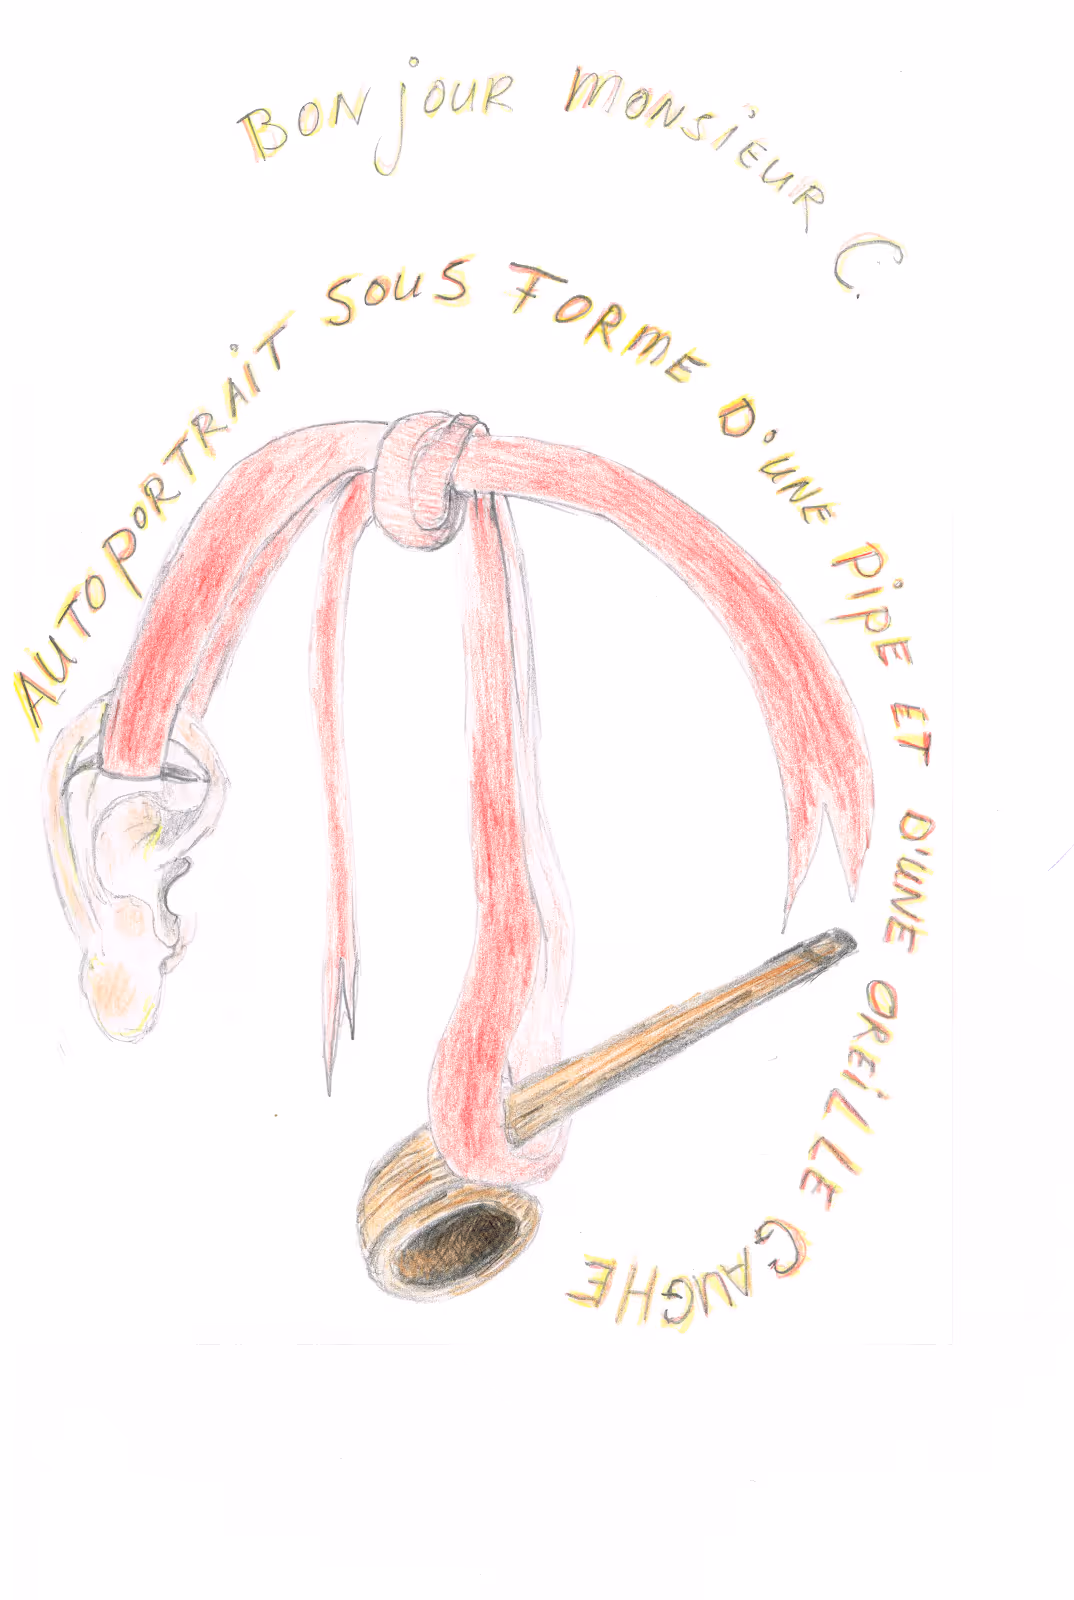 BONjOUR MONSiEUR C.
AUTOPORTRAiT SOUS FORME D'UNE PiPE ET D'UNE OREiLLE GAUGHE